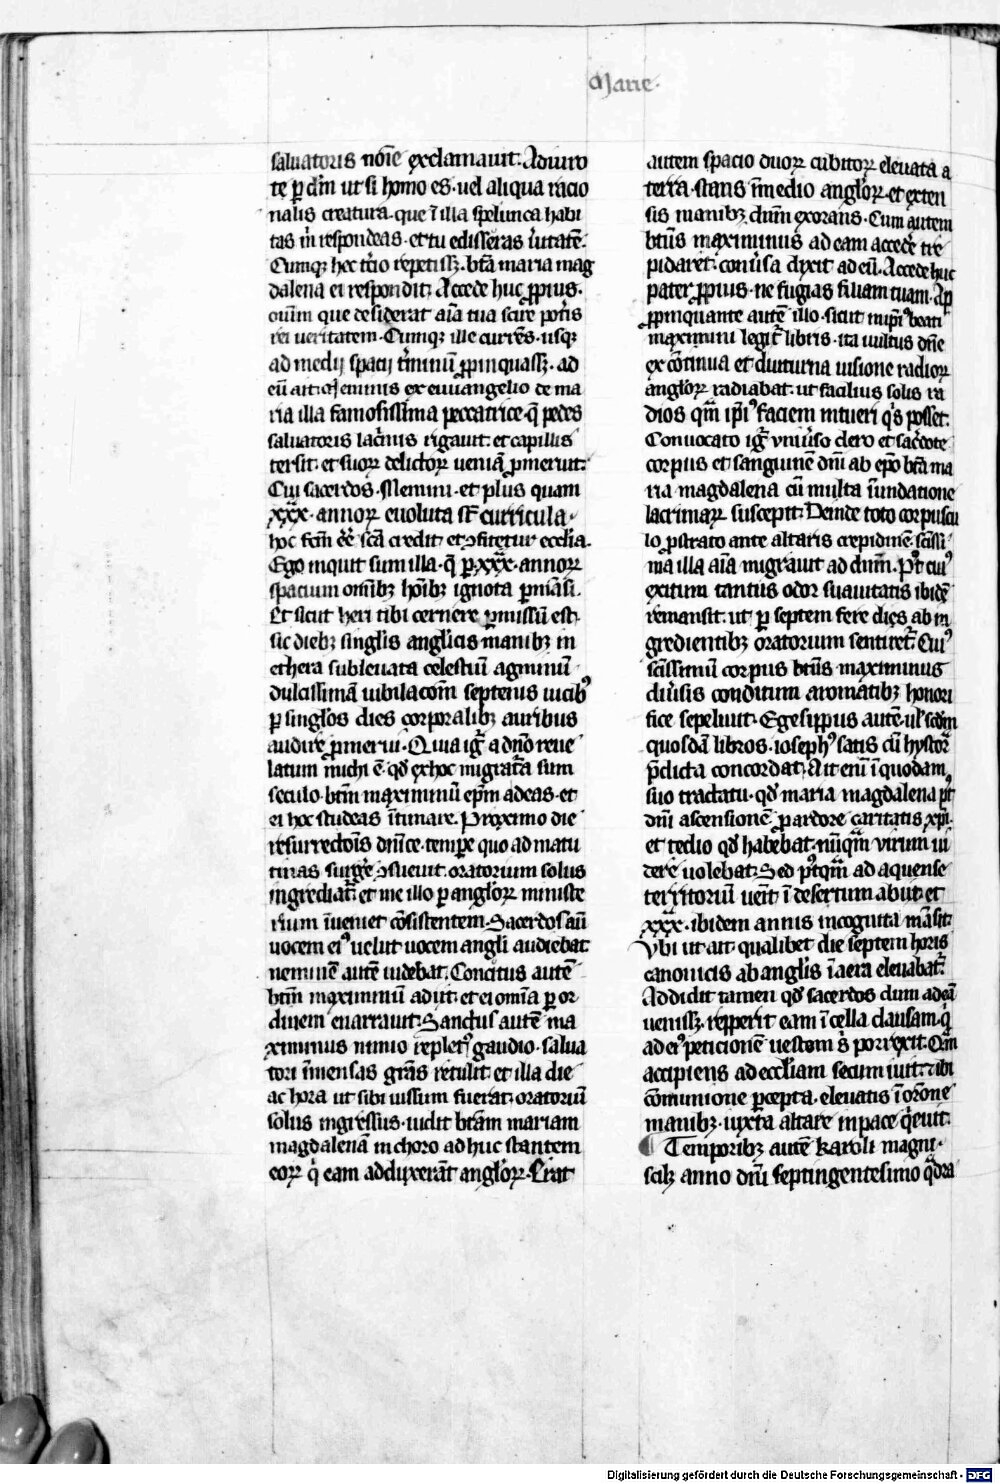 Marie·
saluatoris nōīe exclamauit. Adiuro
te ꝑ dn̄m ut si homo es· uel aliqua racio
nalis creatura· que ī illa spelunca habi
tas m̄ respondeas· et tu edisseras ūitatē·
Cumqꝫ hoc t̄cio repetissꝫ· btā maria mag
dalena ei respondit. Accede huc ꝓpius·
oīum que desiderat aīa tua scire pot̄is
rei ueritatem· Cumqꝫ ille currēs· usqꝫ
ad medij spacij t̄minū ꝓpinquassꝫ· ad
eū ait. Meminis ex euuangelio de ma
ria illa famosissima peccatrice· q̄ pedes
saluatoris lac̄mis rigauit· et capillis
tersit· et suoꝝ delictoꝝ ueniā ꝓmeruit.
Cui sacerdos· Memini· et plus quam
xxx̄· annoꝝ euoluta st̄ curricula·
hoc fc̄m eē sc̄a credit et ꝯfitetur eccl̄ia·
Ego inquit sum illa· q̄ ꝑ xxx̄· annoꝝ
spacium om̄ibꝫ hōibꝫ ignota ꝑmāsi·
Et sicut heri tibi cernere ꝑmissū est·
sic diebꝫ singlis anglicis manibꝫ in
ethera subleuata celestiū agminū
dulcissimā iubilacōm septenis uicibꝰ
ꝑ singlos dies corporalibꝫ auribus
audire ꝓmerui· Quia iḡ a dn̄o reue
latum michi ē· qd̄ ex hoc migrat̄a sum
seculo· btm̄ maximinū ep̄m adeas· et
ei hoc studeas ītimare· Proximo die
resurrectōis dn̄ice· tempe quo ad matu
tinas surgē ꝯsueuit· oratorium solus
ingrediat̄· et me illo ꝑ angloꝝ ministe
rium īueniet cōsistentem· Sacerdos aū
uocem eiꝰ uelut uocem angli audiebat
neminē autē uidebat. Concitus autē
btm̄ maximinū adiit· et ei om̄ia ꝑ or
dinem enarrauit. Sanctus autē ma
ximinus nimio repletꝰ gaudio· salua
tori īmensas grās retulit· et illa die
ac hora ut sibi iussum fuerat· oratoriū
solus ingressus· uidit btām mariam
magdalenā in choro ad huc stantem
eoꝝ q̄ eam adduxerāt angloꝝ· Erat
autem spacio duoꝝ cubitoꝝ eleuata a
terra· stans īmedio angloꝝ· et exten
sis manibꝫ dn̄m exorans· Cum autem
btūs maximinus ad eam accedē tre
pidaret· conūsa dixit ad eū. Accede huc
pater ꝓpius· ne fugias filiam tuam. Ap
ꝓpinquante autē illo· sicut in ip̄iꝰ beati
maximini legit̄ libris· ita uultus dn̄e
ex cōtinua et diuturna uisione radioꝝ
angloꝝ radiabat· ut facilius solis ra
dios qm̄ ip̄iꝰ faciem intueri q̄s posset.
Conuocato iḡ uniūso clero et sac̄dote
corpus et sanguinē dn̄i ab ep̄o btā ma
ria magdalena cū multa īundatione
lacrimaꝝ suscepit. Deinde toto corpuscu
lo ꝓstrato ante altaris crepidinē sc̄issi
ma illa aīa migrauit ad dn̄m. Pꝰt cuiꝰ
exitum tantus odor suauitatis ibidē
remansit· ut ꝑ septem fere dies ab in
gredientibꝫ oratorium sentiret̄. Cuiꝰ
sc̄issimū corpus btūs maximinus
diūsis conditum aromatibꝫ honori
fice sepeliuit· Egesippus autē· ul̄ scdm̄
quosdā libros· iosephꝰ satis cū hystor̄
p̄dicta concordat. Ait enī ī quodam
suo tractatu· qd̄ maria magdalena pꝰt
dn̄i ascensionē ꝑ ardore caritatis xp̄i·
et tedio qd̄ habebat· nūqm̄ virum ui
dere uolebat. Sed pꝰtqm̄ ad aquense
territoriū uēit ī desertum abiit· et
xxx̄· ibidem annis incognita māsit.
Vbi ut ait· qualibet die septem horis
canonicis ab anglis ī aera eleuabat̄.
Addidit tamen qd̄ sacerdos dum ad eā
uenissꝫ· repperit eam ī cella clausam· q̄
ad eiꝰ peticionē uestem s̄ porrexit. Qm̄
accipiens ad eccl̄iam secum iuit· ibi
cōmunione ꝑcepta· eleuatis ī orōne
manibꝫ· iuxta altare in pace q̄euit·
¶ Temporibꝫ autē karoli magni·
scilꝫ anno dn̄i septingentesimo q̄dra
Digitalisierung gefördert durch die Deutsche Forschungsgemeinschaft - DFG